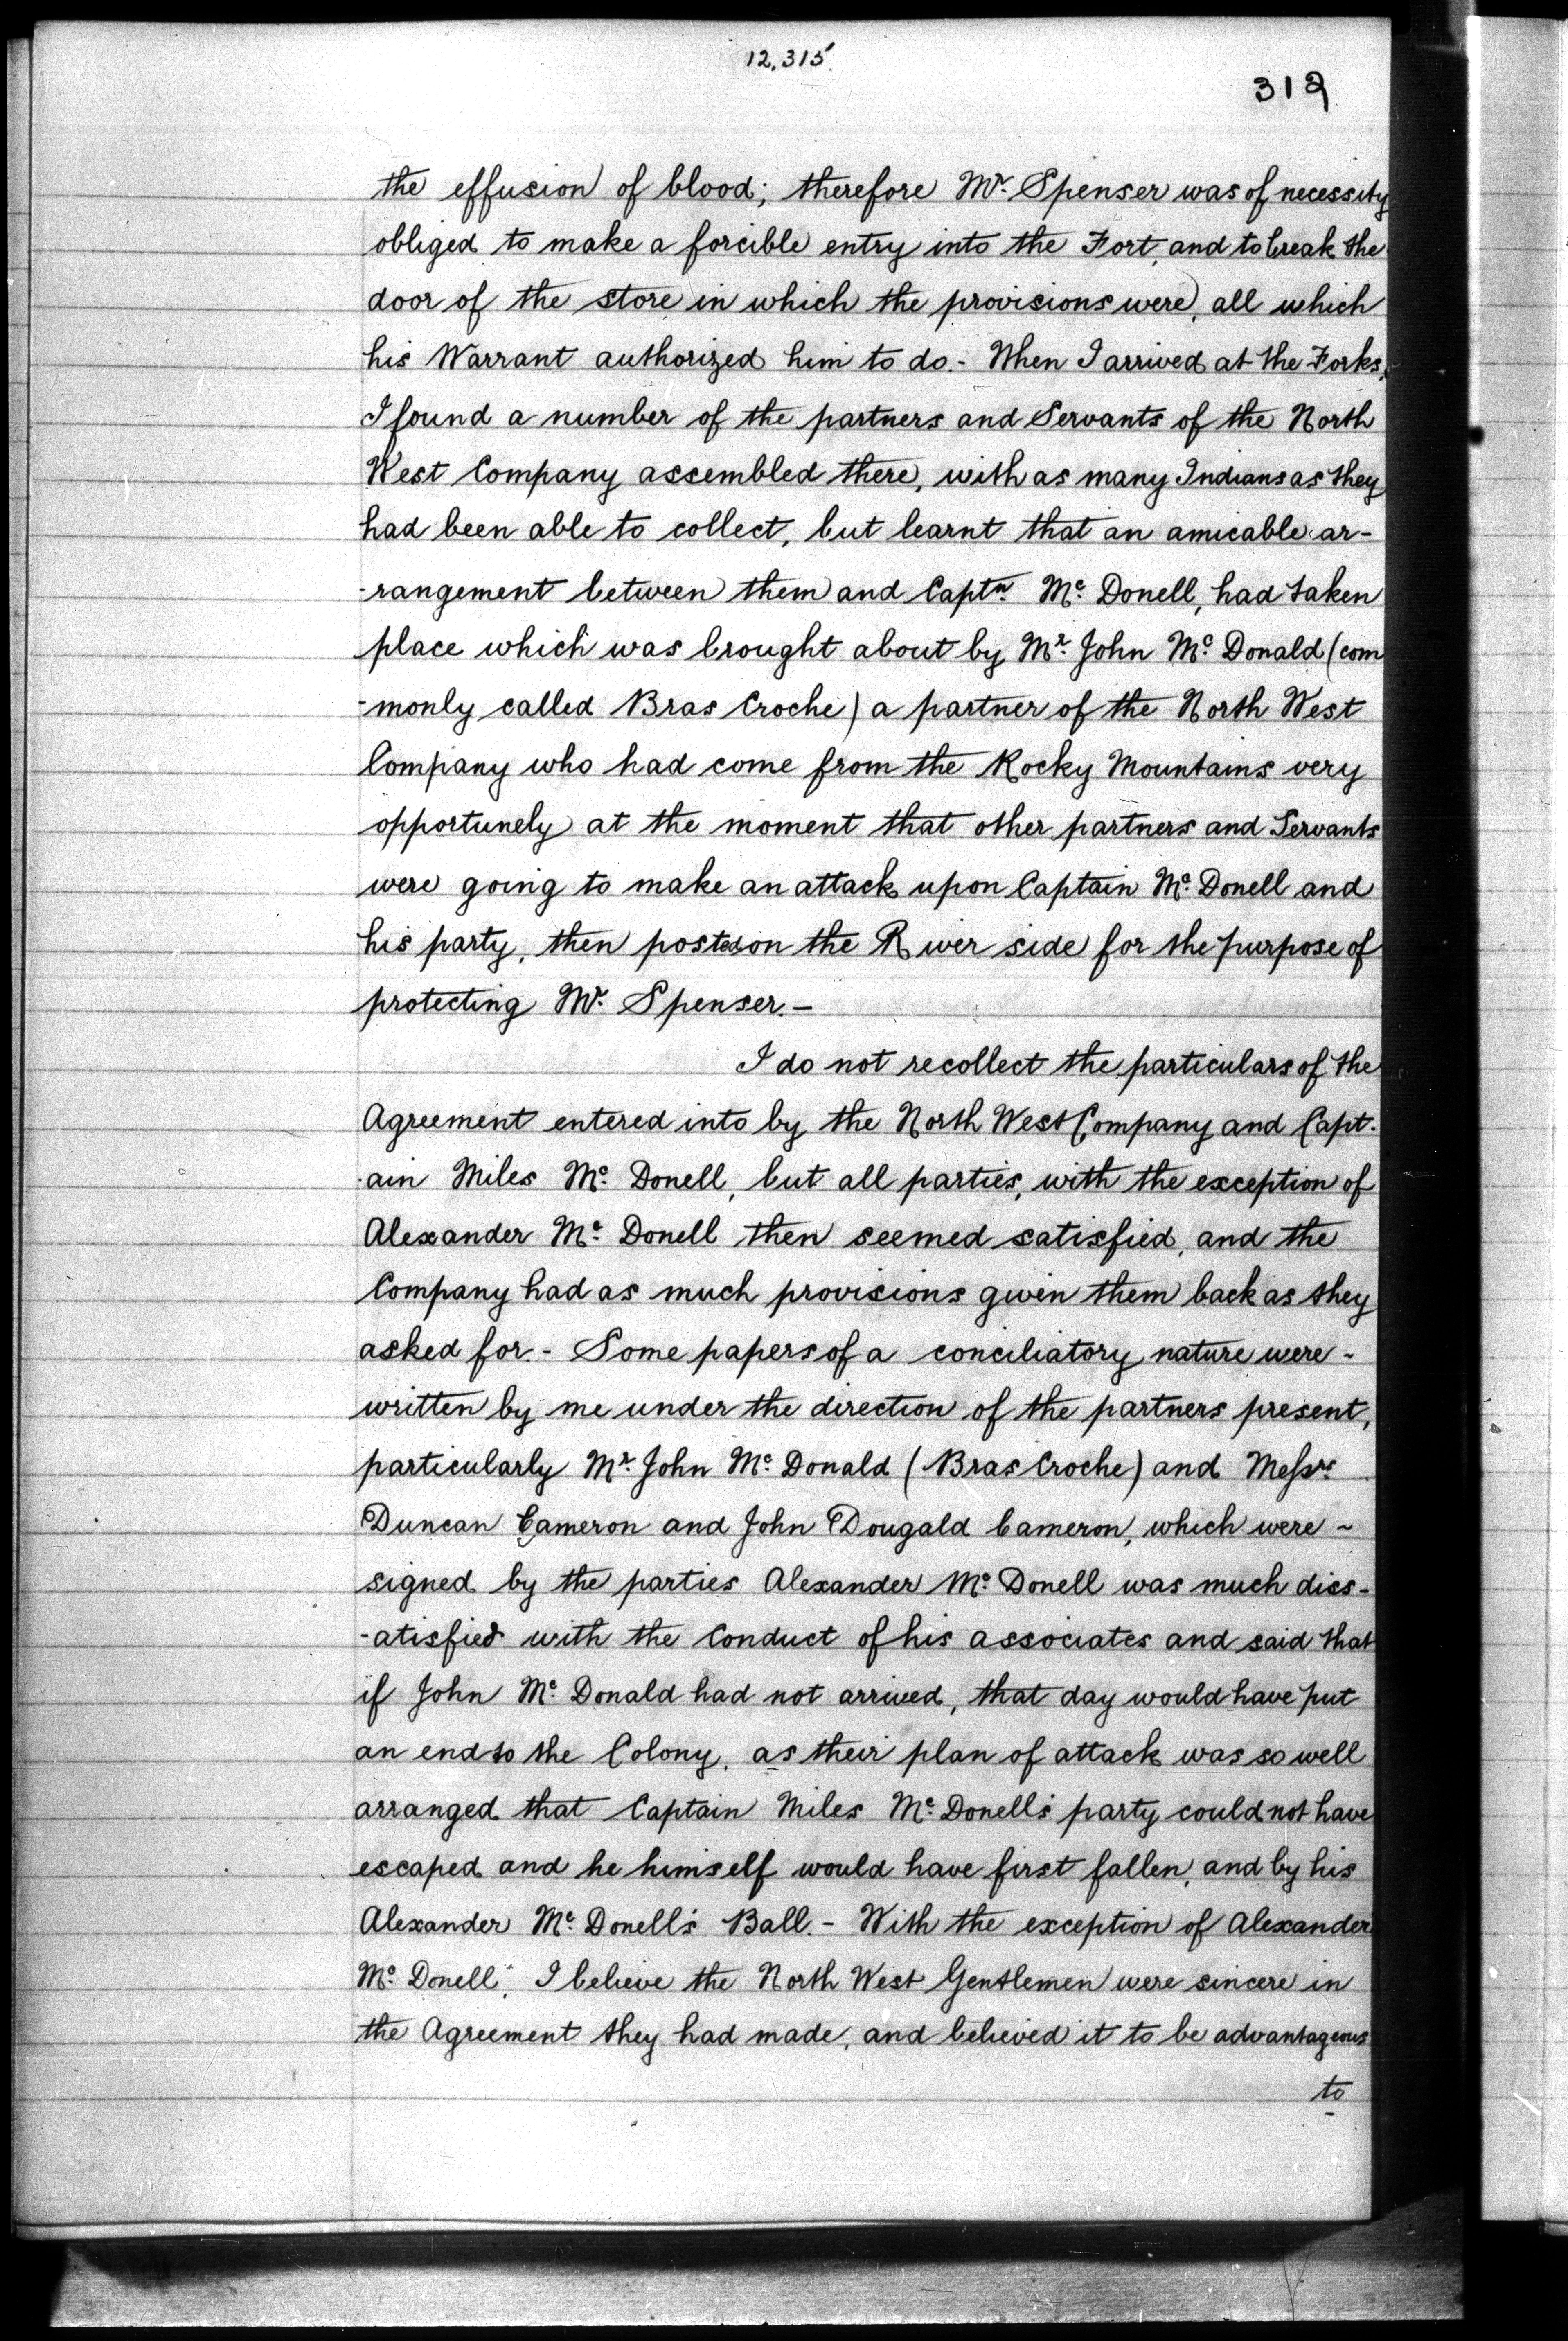 12,315
312
the effusion of blood; therefore Mr. Spenser was of necessity
obliged to make a forcible entry into the Fort, and to break the
door of the store in which the provisions were, all which
his Warrant authorized him to do. - When I arrived at the Forks,
I found a number of the partners and Servants of the North
West Company assembled there, with as many Indians as they
had been able to collect, but learnt that an amicable ar-
-rangement between them and Captn. Mc. Donell, had taken
place which was brought about by Mr. John Mc. Donald (com
-monly called Bras Croche) a partner of the North West
Company who had come from the Rocky Mountains very
opportunely at the moment that other partners and Servants
were going to make an attack upon Captain Mc. Donell and
his party, then posted on the River side for the purpose of
protecting Mr. Spenser. -
I do not recollect the particulars of the
Agreement entered into by the North West Company and Capt-
-ain Miles Mc. Donell, but all parties, with the exception of
Alexander Mc. Donell then seemed satisfied, and the
Company had as much provisions given them back as they
asked for. - Some papers of a conciliatory nature were -
written by me under the direction of the partners present,
particularly Mr. John Mc. Donald (Bras Croche) and Messrs
Duncan Cameron and John Dougald Cameron, which were ~
signed by the parties Alexander Mc. Donell was much diss-
-atisfied with the Conduct of his associates and said that
if John Mc. Donald had not arrived, that day would have put
an end to the Colony, as their plan of attack was so well
arranged that Captain Miles Mc. Donell's party could not have
escaped and he himself would have first fallen, and by his
Alexander Mc. Donell's Ball. - With the exception of Alexander
Mc. Donell, I believe the North West Gentlemen were sincere in
the Agreement they had made, and believed it to be advantageous
to